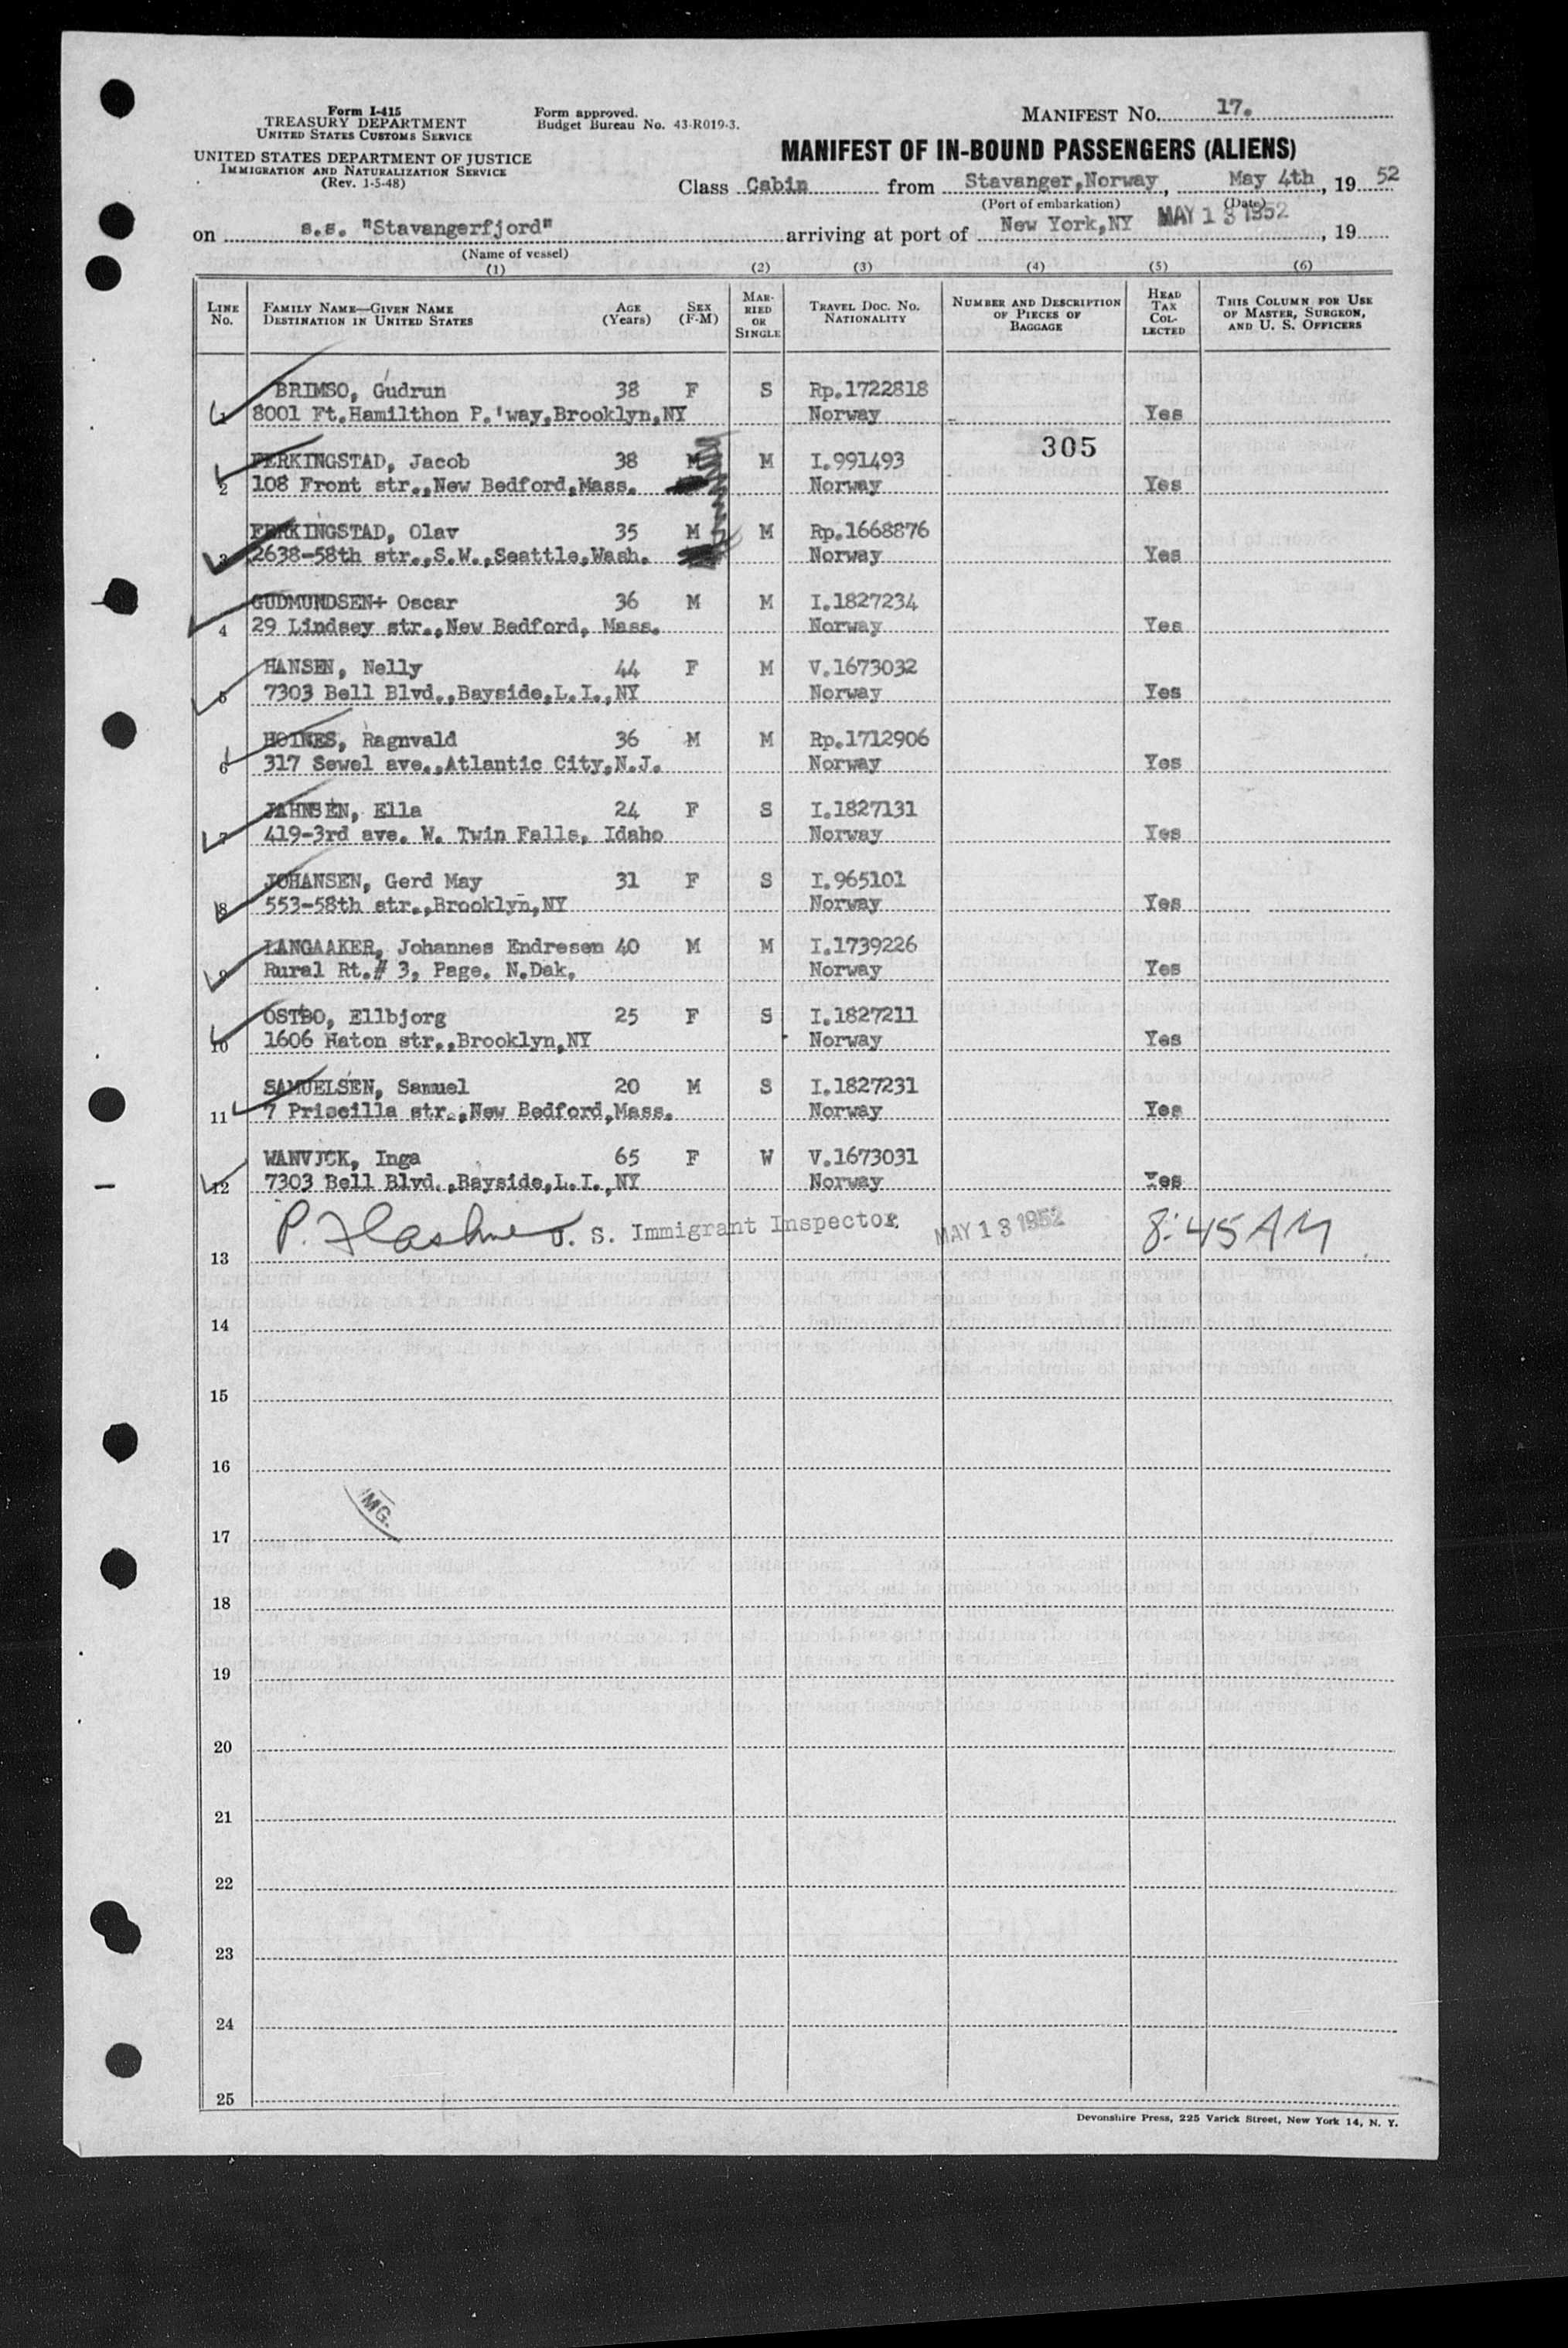 Form I-415
TREASURY DEPARTMENT
UNITED STATES CUSTOMS SERVICE
UNITED STATES DEPARTMENT OF JUSTICE
IMMIGRATION AND NATURALIZATION SERVICE
(Rev. 1-5-48)
Form approved.
Budget Bureau No. 43-R019-3.
MANIFEST No. 17.
MANIFEST OF IN-BOUND PASSENGERS (ALIENS)
Class Cabin from Stavanger,Norway, May 4th, 19 52
(Port of embarkation) (Date)
on s.s. "Stavangerfjord" arriving at port of New York,NY MAY 13 1952, 19
(Name of vessel)
(1) (2) (3) (4) (5) (6)
LINE No. FAMILY NAME—GIVEN NAME DESTINATION IN UNITED STATES AGE (Years) SEX (F-M) MARRIED OR SINGLE TRAVEL DOC. No. NATIONALITY NUMBER AND DESCRIPTION OF PIECES OF BAGGAGE HEAD TAX COLLECTED THIS COLUMN FOR USE OF MASTER, SURGEON, AND U. S. OFFICERS
BRIMSO, Gudrun 38 F S Rp.1722818
1 8001 Ft.Hamilthon P.'way,Brooklyn,NY Norway Yes
305
FERKINGSTAD, Jacob 38 M M I.991493
2 108 Front str.,New Bedford,Mass. Norway Yes
FERKINGSTAD, Olav 35 M M Rp.1668876
3 2638-58th str.,S.W.,Seattle,Wash. Norway Yes
GUDMUNDSEN+ Oscar 36 M M I.1827234
4 29 Lindsey str.,New Bedford, Mass. Norway Yes
HANSEN, Nelly 44 F M V.1673032
5 7303 Bell Blvd.,Bayside,L.I.,NY Norway Yes
HOINES, Ragnvald 36 M M Rp.1712906
6 317 Sewel ave.,Atlantic City,N.J. Norway Yes
JAHNSEN, Ella 24 F S I.1827131
7 419-3rd ave. W. Twin Falls, Idaho Norway Yes
JOHANSEN, Gerd May 31 F S I.965101
8 553-58th str.,Brooklyn,NY Norway Yes
LANGAAKER, Johannes Endresen 40 M M I.1739226
9 Rural Rt.# 3, Page. N.Dak, Norway Yes
OSTBO, Ellbjorg 25 F S I.1827211
10 1606 Haton str.,Brooklyn,NY Norway Yes
SAMUELSEN, Samuel 20 M S I.1827231
11 7 Priscilla str.,New Bedford,Mass. Norway Yes
WANVJCK, Inga 65 F W V.1673031
12 7303 Bell Blvd.,Bayside,L.I.,NY Norway Yes
P. U. S. Immigrant Inspector MAY 13 1952 8:45 AM
13
14
15
16
IMG.
17
18
19
20
21
22
23
24
25
Devonshire Press, 225 Varick Street, New York 14, N. Y.